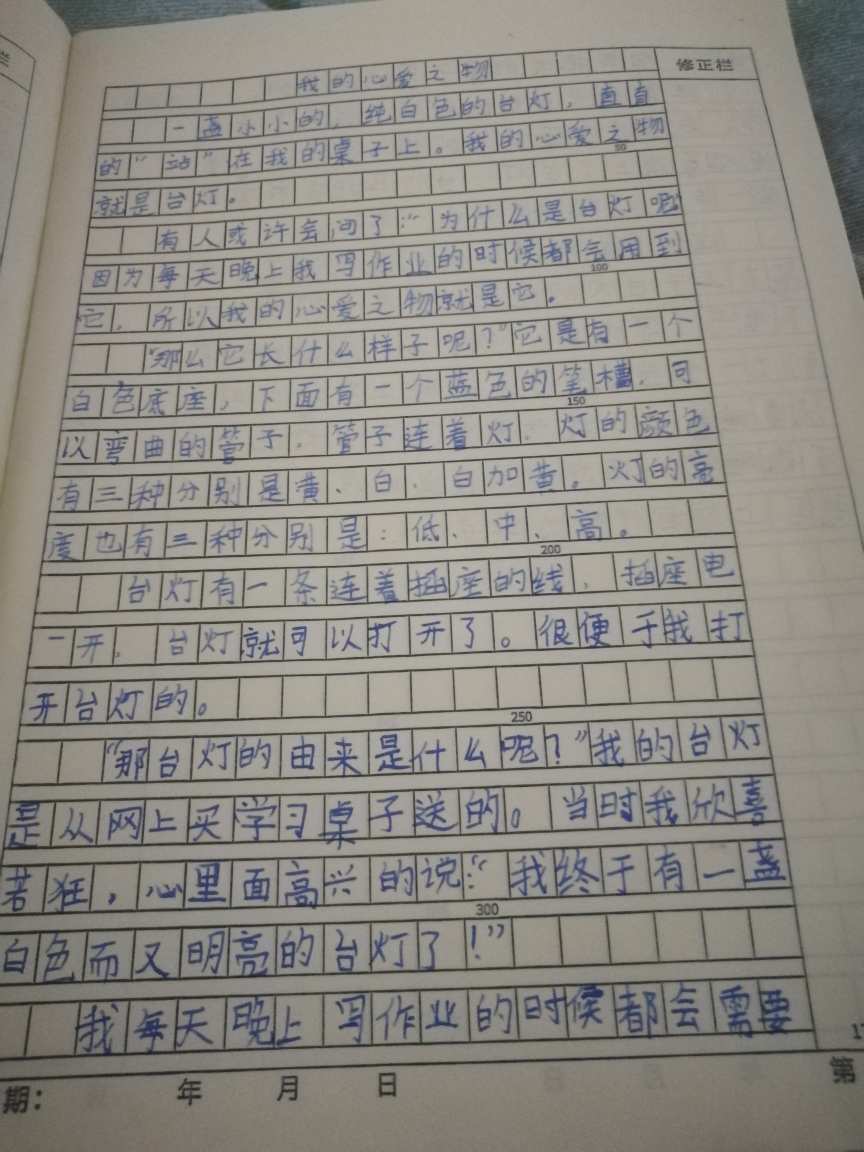 我的心爱之物
修正栏
一盏小小的，纯白色的台灯，直直
的“站”在我的桌子上。我的心爱之物
50
就是台灯。
有人或许会问了：“为什么是台灯呢
因为每天晚上我写作业的时候都会用到
100
它，所以我的心爱之物就是它。
“那么它长什么样子呢？”它是有一个
白色底座，下面有一个蓝色的笔槽，可
150
以弯曲的管子，管子连着灯，灯的颜色
有三种分别是黄、白、白加黄。灯的亮
度也有三种分别是：低、中、高。
200
台灯有一条连着插座的线，插座电
一开，台灯就可以打开了。很便于我打
开台灯的。
250
“那台灯的由来是什么呢？”我的台灯
是从网上买学习桌子送的。当时我欣喜
若狂，心里面高兴的说：“我终于有一盏
300
白色而又明亮的台灯了！”
我每天晚上写作业的时候都会需要
17
期： 年 月 日
第